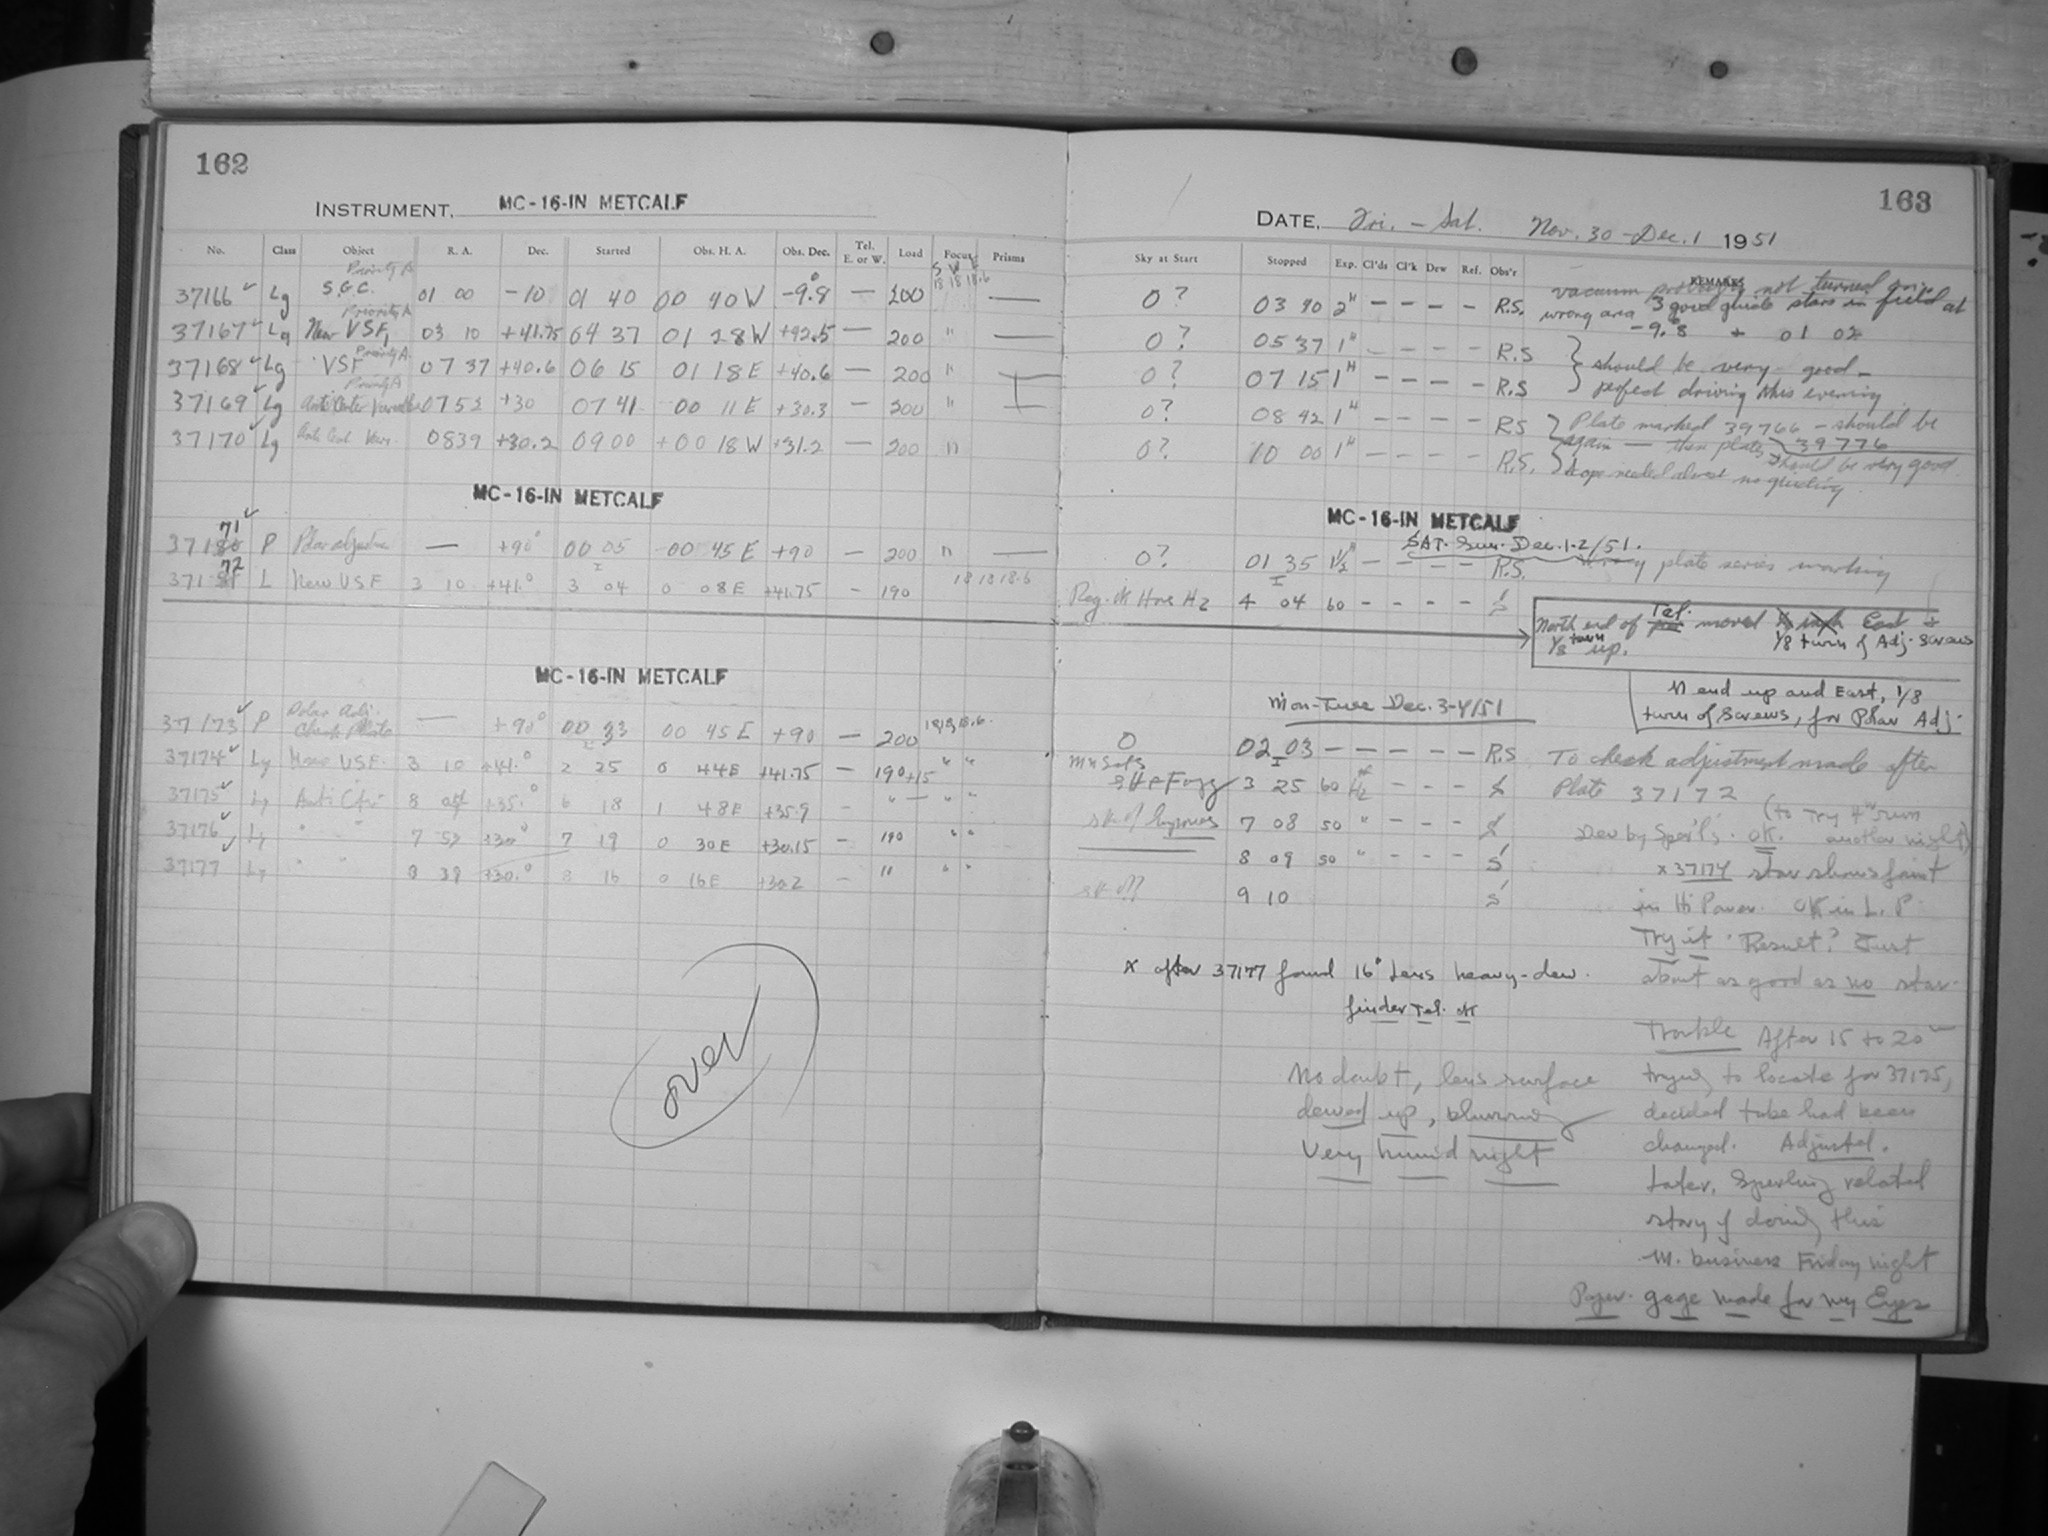 162
INSTRUMENT, MC-16-IN METCALF
No. Class Object R. A. Dec. Started Obs. H. A. Obs. Dec. Tel. E. or W. Load Focus Prisms
Priority A S V E
37166 ✓ Lg S.G.C. 01 00 -10 01 40 00 40 W -9.8 — 200 18 18 18.6 —
Priority A
37167 ✓ Lg New VSF, 03 10 +41.75 04 37 01 28 W +42.5 — 200 "
Priority A.
37168 ✓ Lg VSF 07 37 +40.6 06 15 01 18 E +40.6 — 200 "
Priority A
37169 ✓ Lg 07 52 +30 07 41 00 11 E +30.3 — 200 "
37170 ✓ Lg 0839 +30.2 09 00 +00 18 W +31.2 — 200 "
MC-16-IN METCALF
71 ✓
37180 P Polar adjustm — +90° 00 05 -00 45 E +90 — 200 " —
72
37181 L New VSF 3 10 +41.° 3 04 0 08 E +41.75 - 190 18 18 18.6
MC-16-IN METCALF
37173 ✓ P Polar Adj. Check Plate — +90° 00 33 00 45 E +90 — 200 18 18 18.6
37174 ✓ Lg New VSF. 3 10 +41.° 2 25 0 44E +41.75 - 190+15 " "
37175 ✓ Lg Anti Ctr 6 18 1 48E +35.9 - " "
37176 ✓ Lg " " 7 52 +30° 7 19 0 30E +30.15 - 190 " "
37177 Lg " " 8 39 +30.° 8 16 0 16E +30.2 - " " "
over
163
DATE, Fri. - Sat. Nov. 30 - Dec. 1 1951
Sky at Start Stopped Exp. Cl'ds Cl'k Dew Ref. Obs'r REMARKS
vacuum probably not turned on.
0? 03 40 2ᴴ — — — — R.S. wrong area 3 good guide stars in field at
-9.8 + 01 02
0? 05 37 1ᴴ — — — — R.S should be very good —
0? 07 15 1ᴴ — — — — R.S perfect driving this evening
0? 08 42 1ᴴ — — — — RS Plate marked 39766 — should be
again — these plates 39776
0? 10 00 1ᴴ — — — — R.S. should be very good.
scope needed almost no guiding.
MC-16-IN METCALF
SAT. Sun. Dec. 1-2/51.
0? 01 35 1½ᴴ — — — — R.S. wrong plate series marking
4 04 60 - - - - S
North end of Tel. moved East +
⅛ turn up. 1/8 turn of Adj. Screws
N end up and East, 1/8
turn of Screws, for Polar Adj.
Mon-Tues Dec. 3-4/51
0 02 03 — — — — — R.S To check adjustment made after
3 25 60 - - - S Plate 37172
(to try 4ᵐ run
7 08 50 " - - - S Dev by Sper'l'g. OK. another night)
8 09 50 " - - - S x 37174 star shows faint
9 10 S in Hi Power. OK in L. P.
Try it. Result? Just
about as good as no star.
x after 37177 found 16" Lens heavy-dew.
finder Tel. OK
No doubt, lens surface
dewed up, blurring
Very humid night
Trouble After 15 to 20ᵐ
trying to locate for 37175,
decided tube had been
changed. Adjusted.
Later, Sperling related
story of doing this
business Friday night
Paper gage made for my Eyes